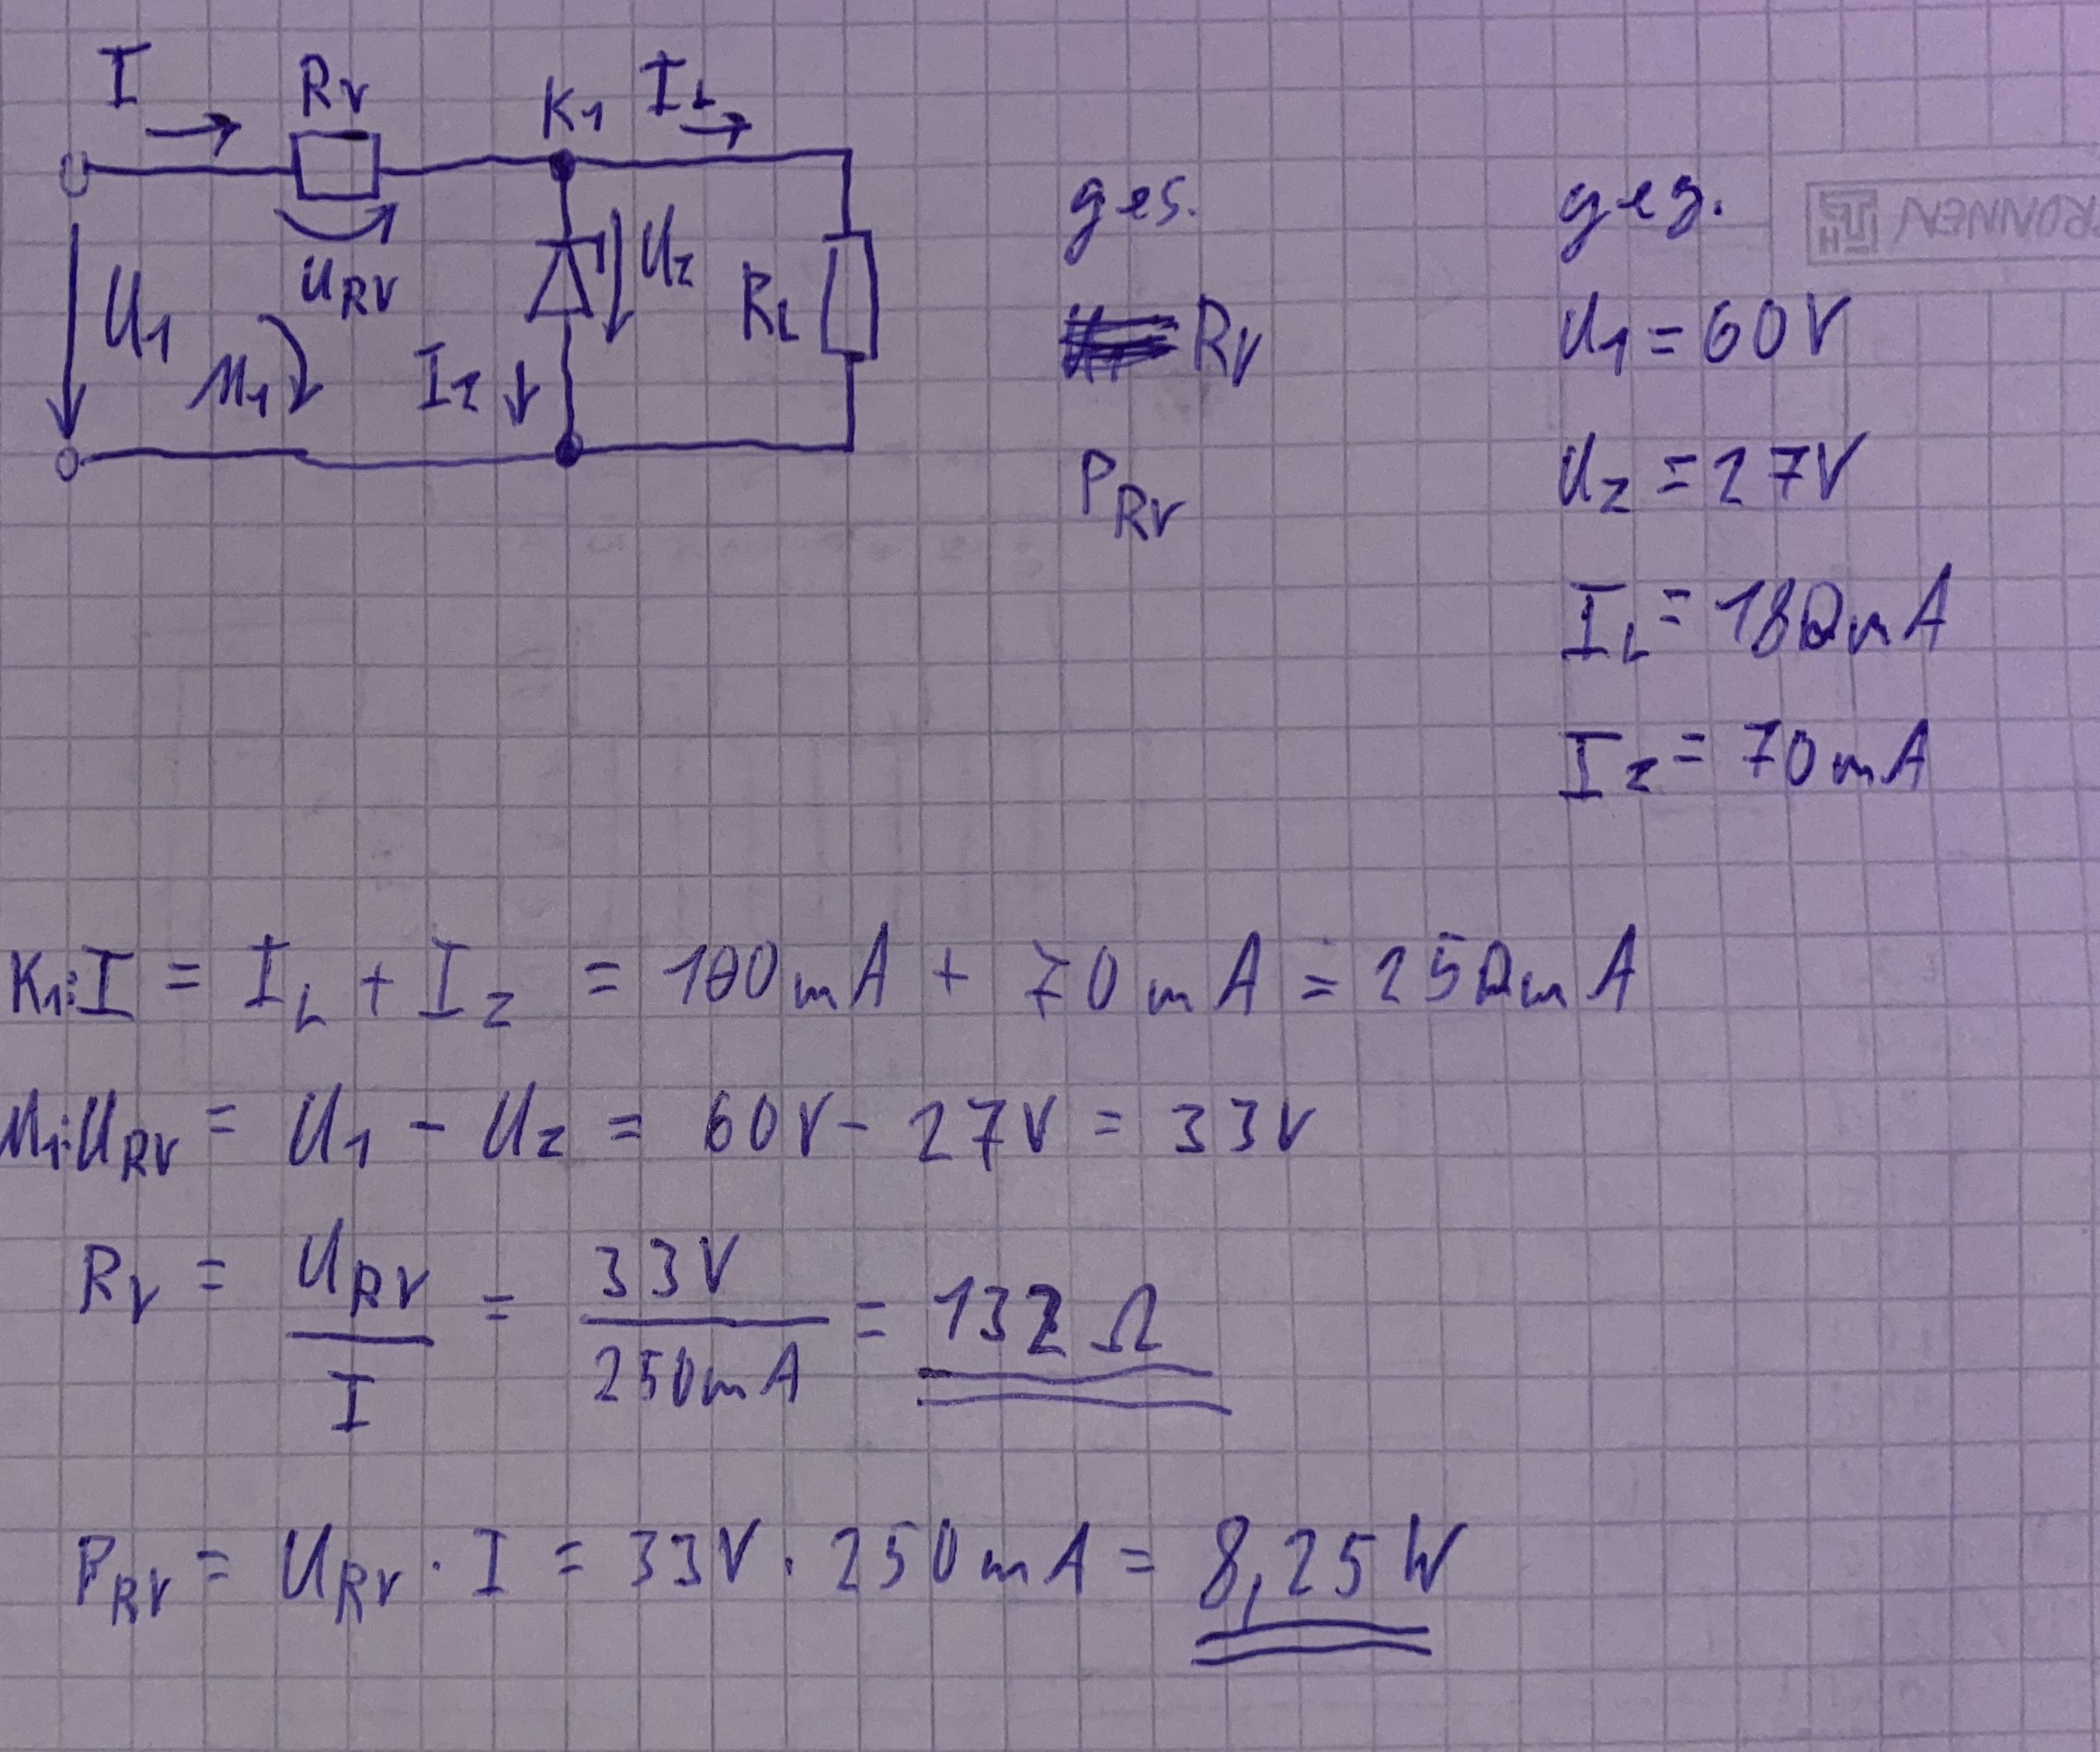 I Rv K1 IL
U1 URV M1 IZ UZ RL
ges. geg.
Rv U1 = 60V
PRV UZ = 27V
IL = 180mA
IZ = 70mA
K1: I = IL + IZ = 180mA + 70mA = 250mA
M1: URV = U1 - UZ = 60V - 27V = 33V
Rv = URV / I = 33V / 250mA = 132 Ω
PRV = URV · I = 33V · 250mA = 8,25W